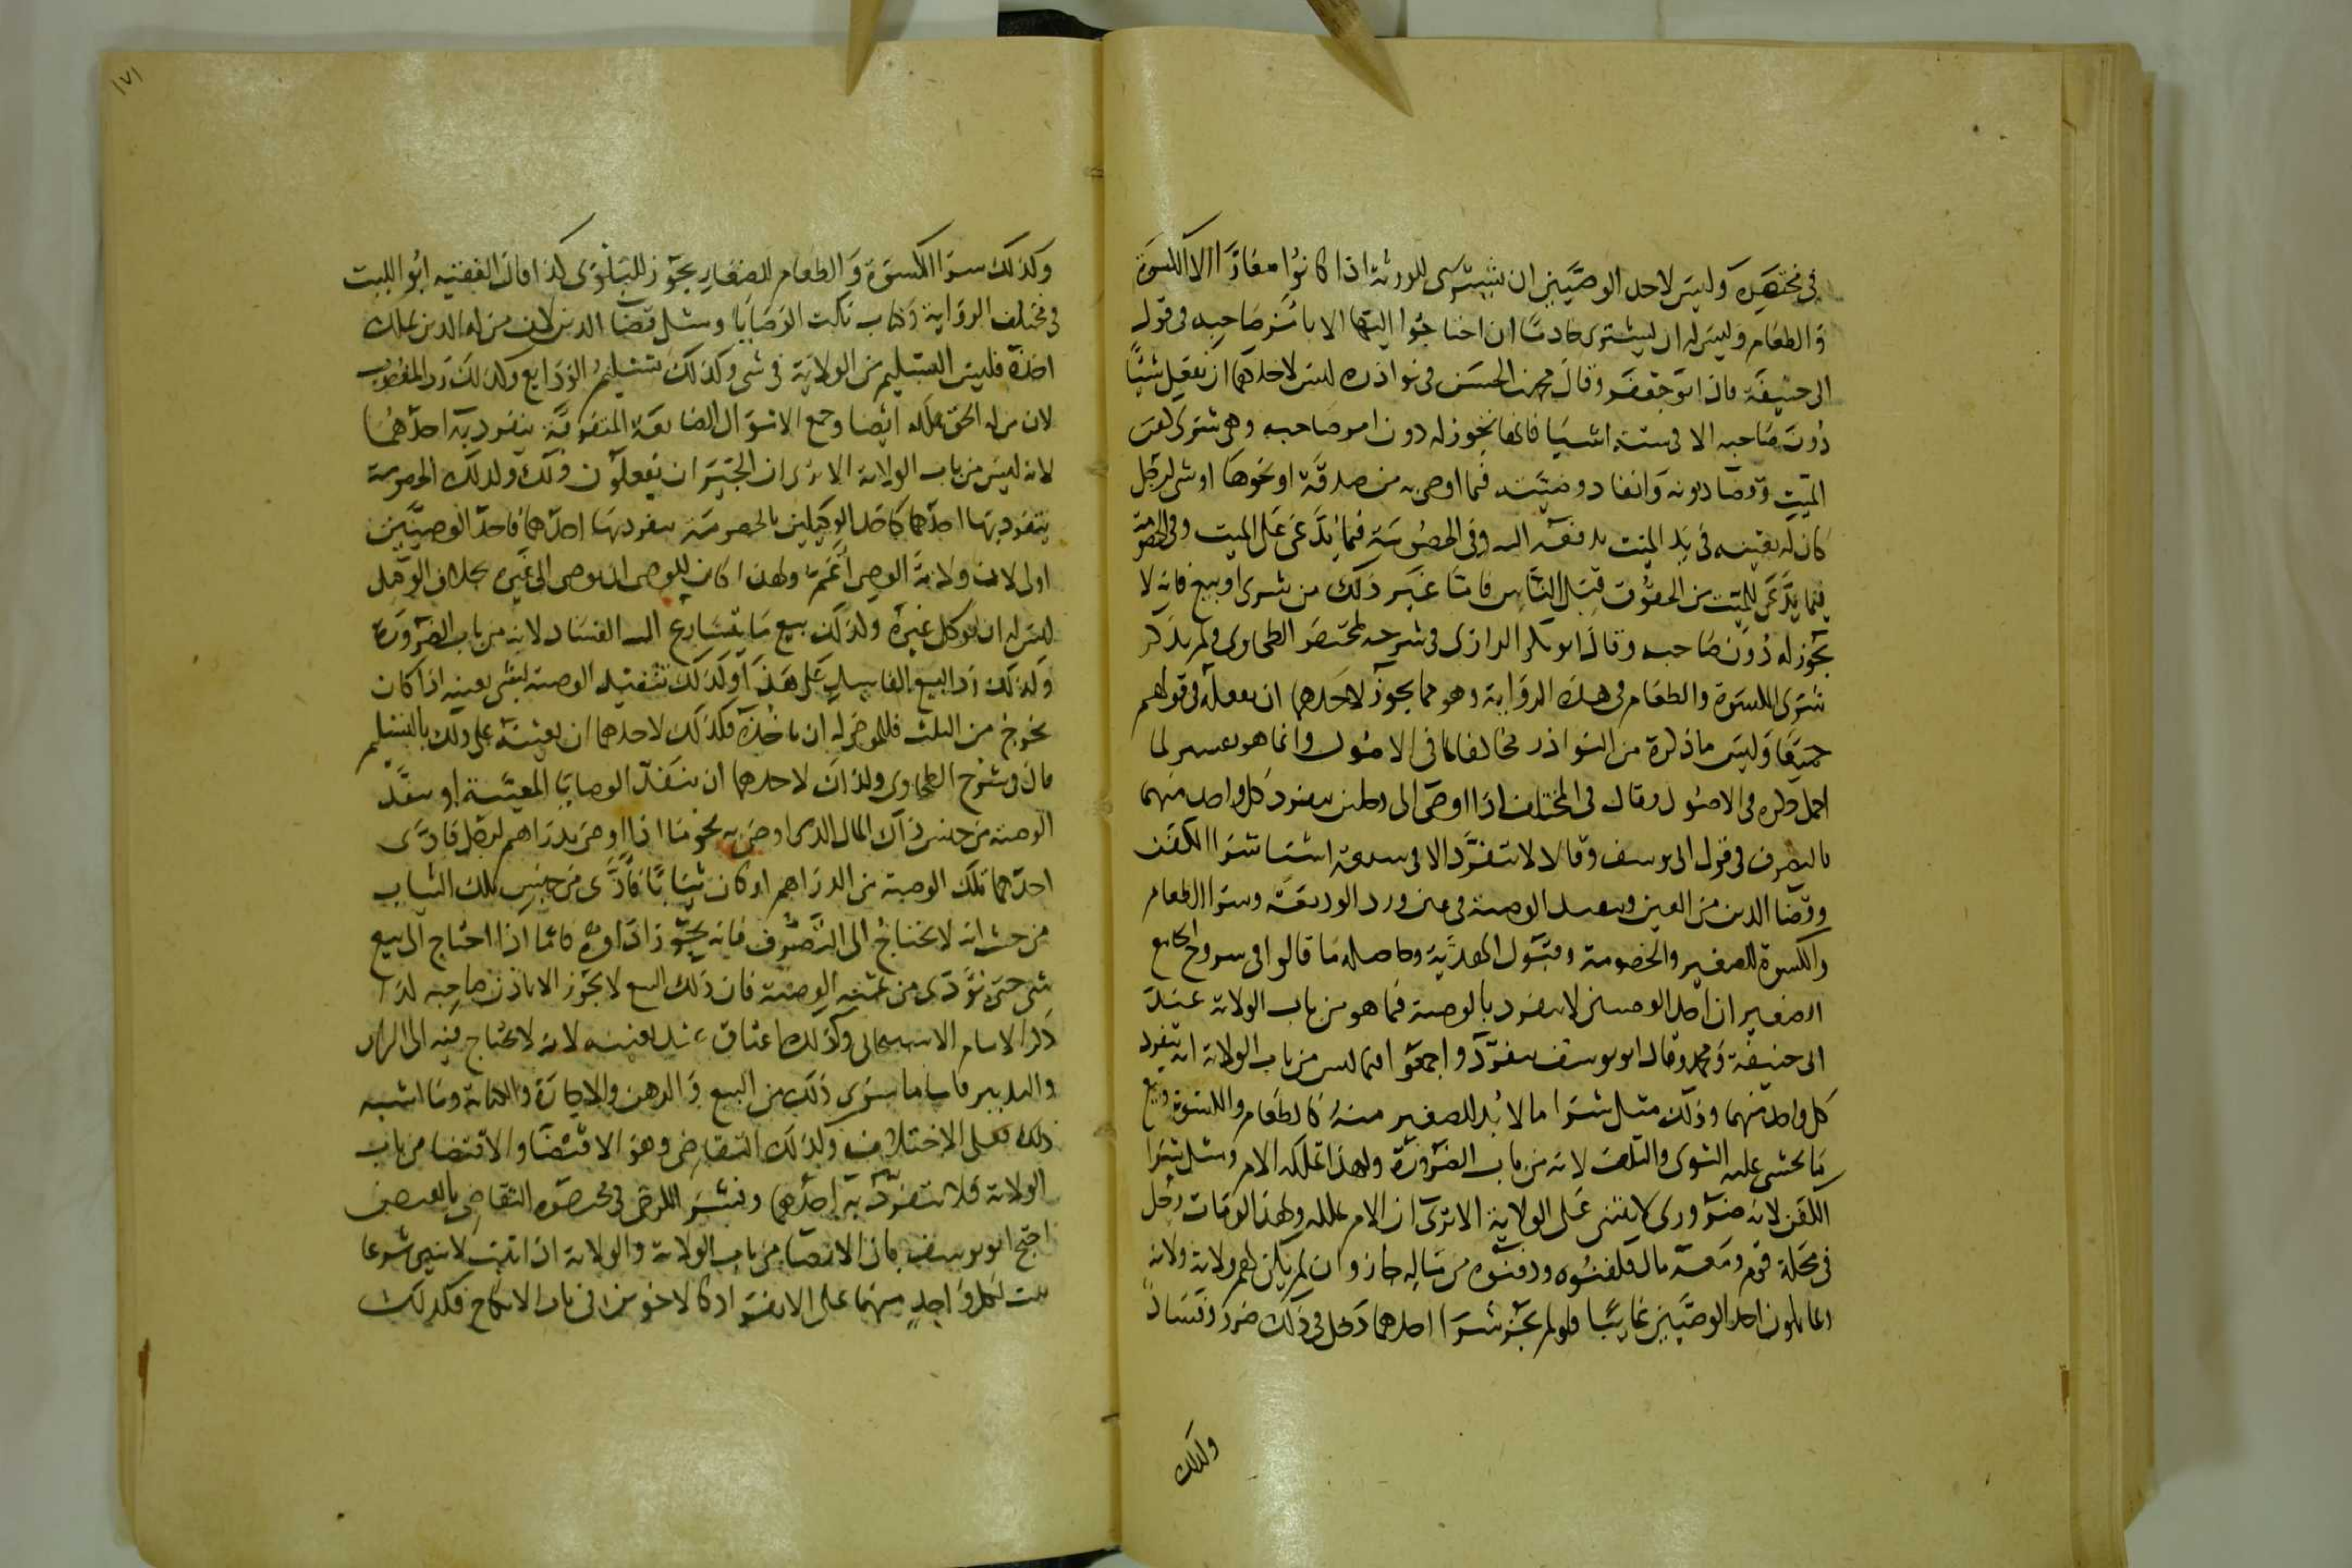 في مختصره وليس لاحد الوصيين ان يشترى للورثة اذا كانوا صغارًا الا الكسوة
والطعام وليس له ان يشترى خادمًا ان احتاجوا اليها الا باذن صاحبه في قول
ابى حنيفة قال ابو جعفر وقال محمد بن الحسن في نوادره ليس لاحدهما ان يفعل شيئًا
دون صاحبه الا في ستة اشيا فانها تجوز له دون امر صاحبه وهي شرى كفن
الميت وقضا ديونه وانفاد وصيته فيما اوصى به من صدقة او نحوها او شى لرجل
كان له بعينه في يد الميت يدفعه اليه وفى الخصومة فيما يدعى على الميت وفى الخصومة
فيما يدعى للميت من الحقوق قبل الناس فاما غير ذلك من شرى او بيع فانه لا
يجوز له دون صاحبه وقال ابو بكر الرازى في شرحه لمختصر الطحاوى ولم يذكر
شرى الكسوة والطعام في هذه الرواية وهو مما يجوز لاحدهما ان يفعله في قولهم
جميعًا وليس ما ذكره من النوادر مخالفا لما في الاصول وانما هو تفسير لما
اجمل ذكره في الاصول وقال في المختلف اذا اوصى الى رجلين ينفرد كل واحد منهما
بالتصرف في قول ابى يوسف وقالا لا يتفرد الا في سبعة اشيا شرا الكفن
وقضا الدين من العين وتنفيذ الوصية في عين ورد الوديعة وشرا الطعام
والكسوة للصغير والخصومة وقبول الهدية وحاصله ما قالوا في شروح الجامع
الصغير ان احد الوصيين لا ينفرد بالوصية فيما هو من باب الولاية عند
ابى حنيفة ومحمد وقال ابو يوسف ينفرد واجمعوا فيما ليس من باب الولاية انه ينفرد
كل واحد منهما وذلك مثل شرا ما لا بد للصغير منه كالطعام والكسوة وبيع
ما يخشى عليه التوى والتلف لانه من باب الضرورة ولهذا تملكه الام ومثل شرا
الكفن لانه ضرورى لا يبتنى على الولاية الا ترى ان الام تملكه ولهذا لو مات رجل
في محلة قوم ومعه مال فكفنوه ودفنوه من ماله جاز وان لم يكن لهم ولاية ولانه
ربما يكون احد الوصيين غائبًا فلو لم يجز شرا احدهما دخل في ذلك ضرر وفساد
وكذلك
١٧١
وكذلك شرا الكسوة والطعام للصغار يجوز للبلوى كذا قال الفقيه ابو الليث
في مختلف الرواية وكتاب نكت الوصايا ومثل قضا الدين لان من له الدين يملك
اخذه فليس التسليم من الولاية في شى وكذلك تسليم الودايع وكذلك رد المغصوب
لان من له الحق يملكه ايضا وجمع الاموال الضايعة المتفرقة ينفرد به احدهما
لانه ليس من باب الولاية الا ترى ان الجيران يفعلون ذلك وكذلك الخصومة
يتفرد بها احدهما كاحد الوكيلين بالخصومة ينفرد بها احدهما فاحد الوصيين
اولى لان ولاية الوصى اعم ولهذا كان للوصى ان يوصى الى غيره بخلاف الوكيل
ليس له ان يوكل غيره وكذلك بيع ما يتسارع اليه الفساد لانه من باب الضرورة
وكذلك رد البيع الفاسد على هذا وكذلك تنفيذ الوصية بشى بعينه اذا كان
يخرج من الثلث فللموصى له ان ياخذه فكذلك لاحدهما ان يعينه على ذلك بالتسليم
قال في شرح الطحاوى وكذلك لاحدهما ان ينفذ الوصايا المعينة او ينفذ
الوصية من جنس ذلك المال الذى اوصى به نحو ما اذا اوصى بدراهم لرجل فادى
احدهما تلك الوصية من الدراهم او كان ثيابًا فادى من جنس تلك الثياب
من حيث انه لا يحتاج الى التصرف فانه يجوز اداوه فاما اذا احتاج الى بيع
شى حتى يؤدى من ثمنه الوصية فان ذلك البيع لا يجوز الا باذن صاحبه كذا
ذكر الامام الاسبيجابى وكذلك اعتاق عبد بعينه لانه لا يحتاج فيه الى الراى
والتدبير فاما ما سوى ذلك من البيع والرهن والاجارة والكتابة وما اشبه
ذلك فعلى الاختلاف وكذلك التقاضى وهو الاقتضا والاقتضا من باب
الولاية فلا يتفرد به احدهما وفسر الكرخى في مختصره التقاضى بالقبض
احتج ابو يوسف بان الايصا من باب الولاية والولاية اذا ثبتت لاثنين شرعا
ثبت لكل واحد منهما على الانفراد كالاخوين في باب الانكاح فكذلك